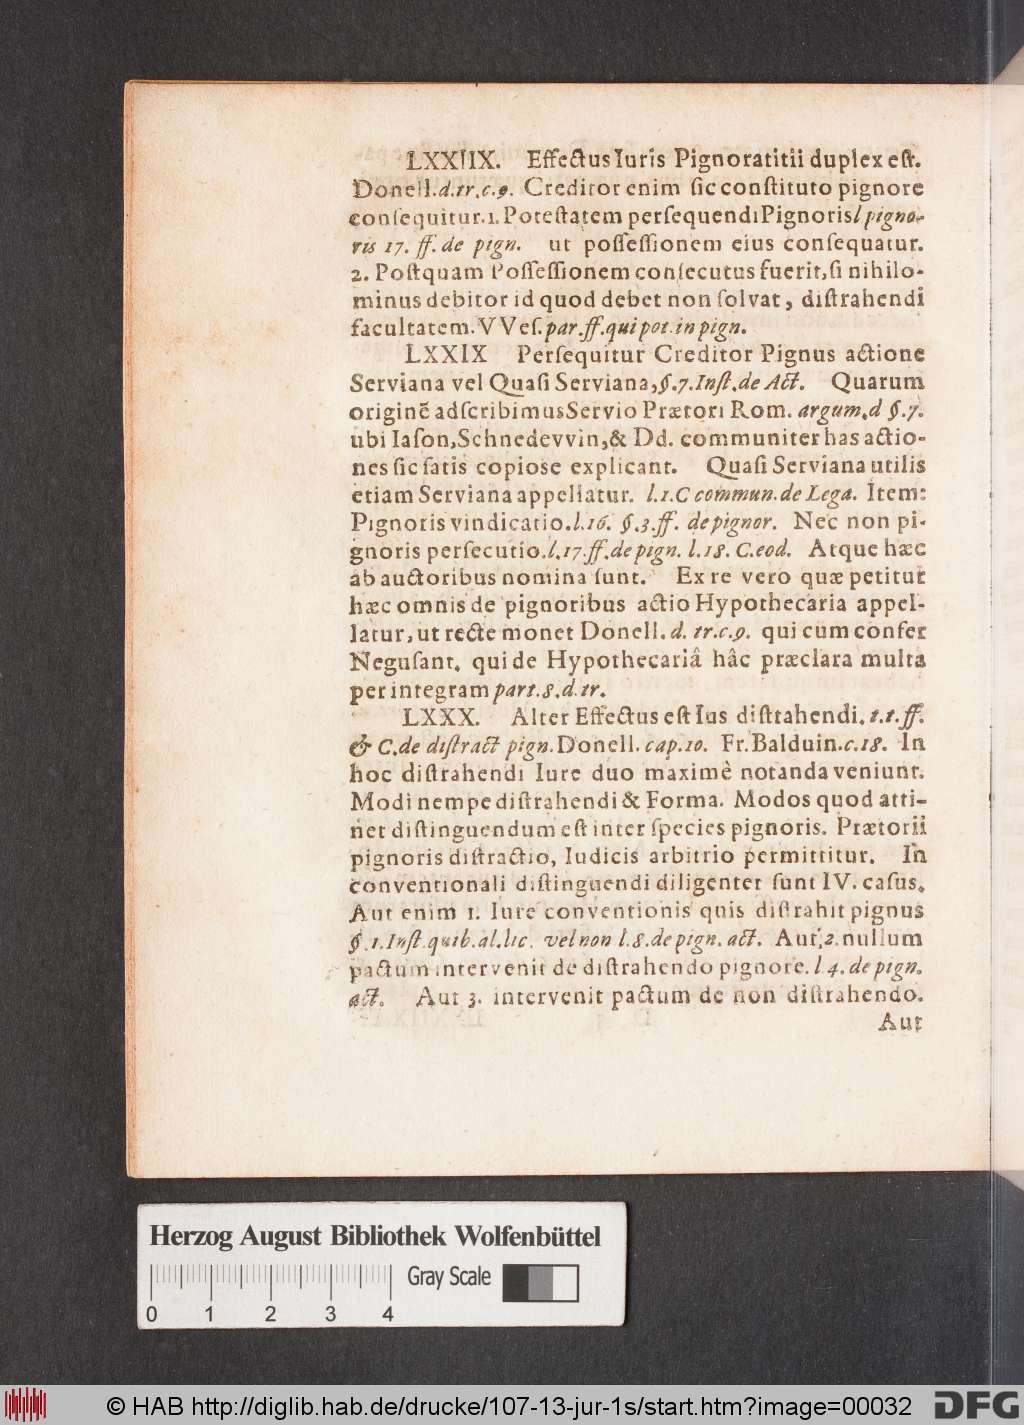 LXXIIX. Effectus Iuris Pignoratitii duplex eſt.
Donell.d.tr.c.9. Creditor enim ſic conſtituto pignore
conſequitur.1. Poteſtatem perſequendi Pignoris l pigno-
ris 17. ff. de pign. ut poſſeſſionem eius conſequatur.
2. Poſtquam Poſſeſſionem conſecutus fuerit, ſi nihilo-
minus debitor id quod debet non ſolvat, diſtrahendi
facultatem. VVeſ. par. ff. qui pot. in pign.
LXXIX Perſequitur Creditor Pignus actione
Serviana vel Quaſi Serviana, §.7. Inſt. de Act. Quarum
originẽ adſcribimus Servio Prætori Rom. argum. d §.7.
ubi Iaſon, Schnedevvin, & Dd. communiter has actio-
nes ſic ſatis copiose explicant. Quaſi Serviana utilis
etiam Serviana appellatur. l.1. C commun. de Lega. Item:
Pignoris vindicatio. l.16. §.3. ff. de pignor. Nec non pi-
gnoris perſecutio. l.17. ff. de pign. l.18. C. eod. Atque hæc
ab auctoribus nomina ſunt. Ex re vero quæ petitur
hæc omnis de pignoribus actio Hypothecaria appel-
latur, ut recte monet Donell. d. tr. c. 9. qui cum confer
Neguſant. qui de Hypothecariâ hâc præclara multa
per integram part. 8. d. tr.
LXXX. Alter Effectus eſt Ius diſtrahendi. t.t. ff.
& C. de diſtract pign. Donell. cap. 10. Fr. Balduin. c. 18. In
hoc diſtrahendi Iure duo maximè notanda veniunt.
Modi nempe diſtrahendi & Forma. Modos quod atti-
net diſtinguendum eſt inter ſpecies pignoris. Prætorii
pignoris diſtractio, Iudicis arbitrio permittitur. In
conventionali diſtinguendi diligenter ſunt IV. caſus.
Aut enim 1. Iure conventionis quis diſtrahit pignus
§.1. Inſt. quib. al. lic. vel non l. 8. de pign. act. Aut, 2. nullum
pactum intervenit de diſtrahendo pignore. l 4. de pign.
act. Aut 3. intervenit pactum de non diſtrahendo.
Aut
Herzog August Bibliothek Wolfenbüttel
Gray Scale
0 1 2 3 4
© HAB http://diglib.hab.de/drucke/107-13-jur-1s/start.htm?image=00032
DFG